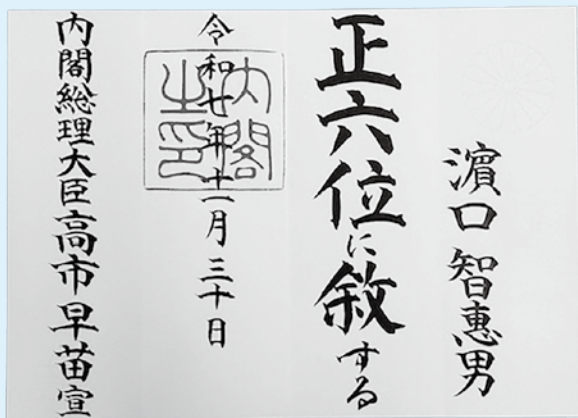 濵口智惠男
正六位に敘する
令和七年十一月三十日
内閣之印
内閣総理大臣高市早苗宣